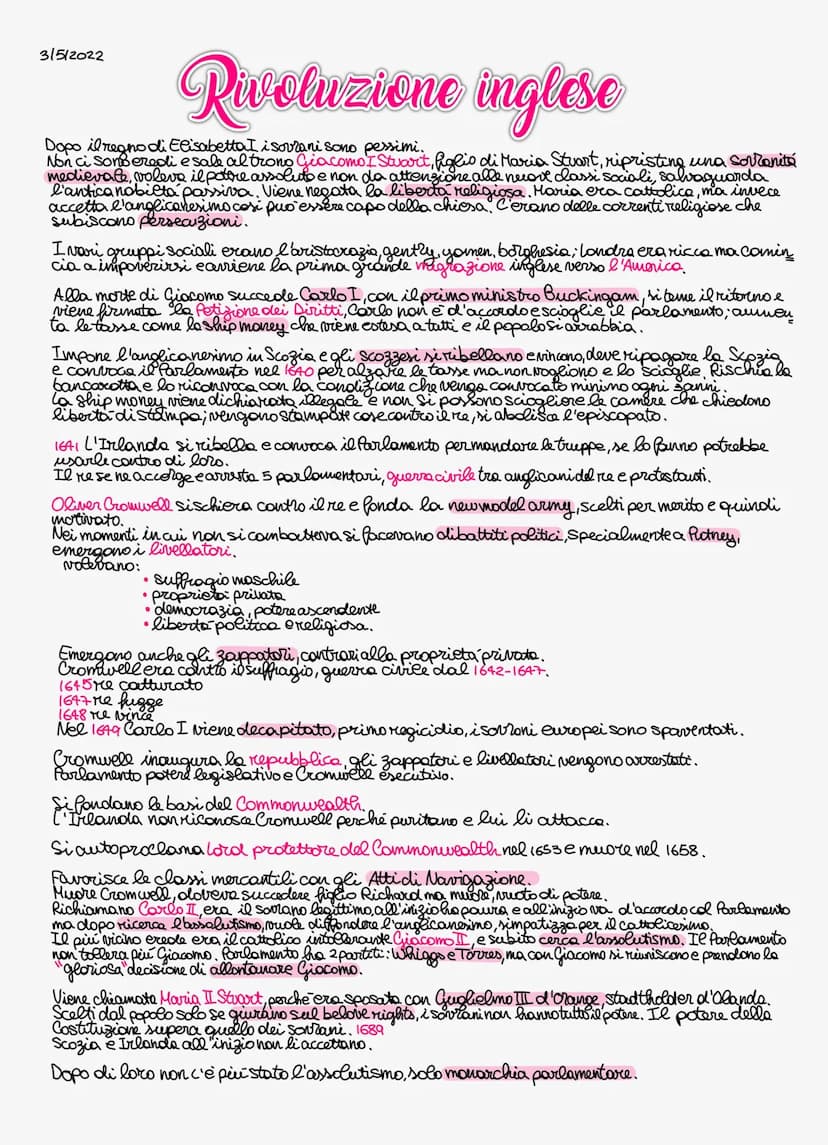 3/5/2022
Rivoluzione inglese
Dopo il regno di Elisabetta I i sovrani sono pessimi.
Non ci sono eredi e sale al trono Giacomo I Stuart, figlio di Maria Stuart, ripristina una sovranità
medievale, voleva il potere assoluto e non da attenzione alle nuove classi sociali, salvaguarda
l'antica nobiltà passiva. Viene negata la libertà religiosa. Maria era cattolica, ma invece
accetta l'anglicanesimo così può essere capo della chiesa. C'erano delle correnti religiose che
subiscono persecuzioni.
I vari gruppi sociali erano l'aristocrazia, gently, yomen, borghesia; Londra era ricca ma comin
cia a impoverirsi e avviene la prima grande migrazione inglese verso l'America.
Alla morte di Giacomo succede Carlo I, con il primo ministro Buckingam, si teme il ritorno e
viene firmata la Petizione dei Diritti, Carlo non è d'accordo e scioglie il parlamento; aumen
ta le tasse come la ship money che viene estesa a tutti e il popolo si arrabbia.
Impone l'anglicanesimo in Scozia e gli scozzesi si ribellano e vincono, deve ripagare la Scozia
e convoca il Parlamento nel 1640 per alzare le tasse ma non vogliono e lo scioglie. Rischia la
bancarotta e lo riconvoca con la condizione che venga convocato minimo ogni 3 anni.
La ship money viene dichiarata illegale e non si possono sciogliere le camere che chiedono
libertà di stampa; vengono stampate cose contro il re, si abolisce l'episcopato.
1641 L'Irlanda si ribella e convoca il Parlamento per mandare le truppe, se lo fanno potrebbe
usarle contro di loro.
Il re se ne accorge e arresta 5 parlamentari, guerra civile tra anglicani del re e protestanti.
Oliver Cromwell si schiera contro il re e fonda la new model army, scelti per merito e quindi
motivato.
Nei momenti in cui non si combatteva si facevano dibattiti politici, specialmente a Putney,
emergono i livellatori.
volevano:
• suffragio maschile
• proprietà privata
• democrazia, potere ascendente
• libertà politica e religiosa.
Emergono anche gli zappatori, contrari alla proprietà privata.
Cromwell era contro il suffragio, guerra civile dal 1642-1647.
1645 re catturato
1647 re fugge
1648 re vince
Nel 1649 Carlo I viene decapitato, primo regicidio, i sovrani europei sono spaventati.
Cromwell inaugura la repubblica, gli zappatori e livellatori vengono arrestati.
Parlamento potere legislativo e Cromwell esecutivo.
Si fondano le basi del Commonwealth.
L'Irlanda non riconosce Cromwell perché puritano e lui li attacca.
Si autoproclama Lord protettore del Commonwealth nel 1653 e muore nel 1658.
Favorisce le classi mercantili con gli Atti di Navigazione.
Muore Cromwell, doveva succedere figlio Richard ma muore, vuoto di potere.
Richiamano Carlo II, era il sovrano legittimo, all'inizio ha paura e all'inizio va d'accordo col Parlamento
ma dopo ricerca l'assolutismo, vuole diffondere l'anglicanesimo, simpatizza per il cattolicesimo.
Il più vicino erede era il cattolico intollerante Giacomo II, e subito cerca l'assolutismo. Il Parlamento
non tollera più Giacomo. Parlamento ha 2 partiti: Whiggs e Torres, ma con Giacomo si riuniscono e prendono la
"gloriosa" decisione di allontanare Giacomo.
Viene chiamata Maria II Stuart, perché era sposata con Guglielmo III d'Orange, stadtholder d'Olanda.
Scelti dal popolo solo se giurano sul belove rights, i sovrani non hanno tutto il potere. Il potere della
Costituzione supera quello dei sovrani. 1689
Scozia e Irlanda all'inizio non li accettano.
Dopo di loro non c'è più stato l'assolutismo, solo monarchia parlamentare.